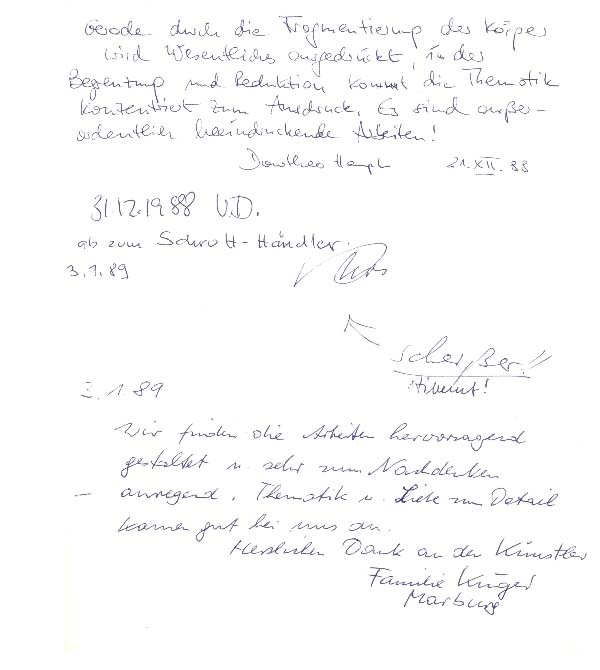 Gerade durch die Fragmentierung des Körpers
wird Wesentliches ausgedrückt, in der
Begrenzung und Reduktion kommt die Thematik
konzentriert zum Ausdruck. Es sind außer-
ordentlich beeindruckende Arbeiten!
21.XII.88
31.12.1988 V.D.
ab zum Schrott-Händler.
3.1.89
Scheißer!!
stimmt!
3.1.89
Wir finden die Arbeiten hervorragend
gestaltet u. sehr zum Nachdenken
anregend. Thematik u. Liebe zum Detail
kamen gut bei uns an.
Herzlichen Dank an den Künstler
Familie Krüger
Marburg